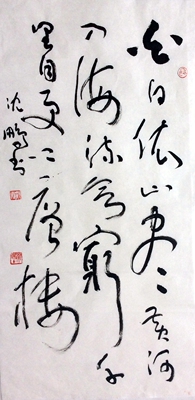 白日依山尽黄河
入海流欲窮千
里目更上一層樓
沈鵬書